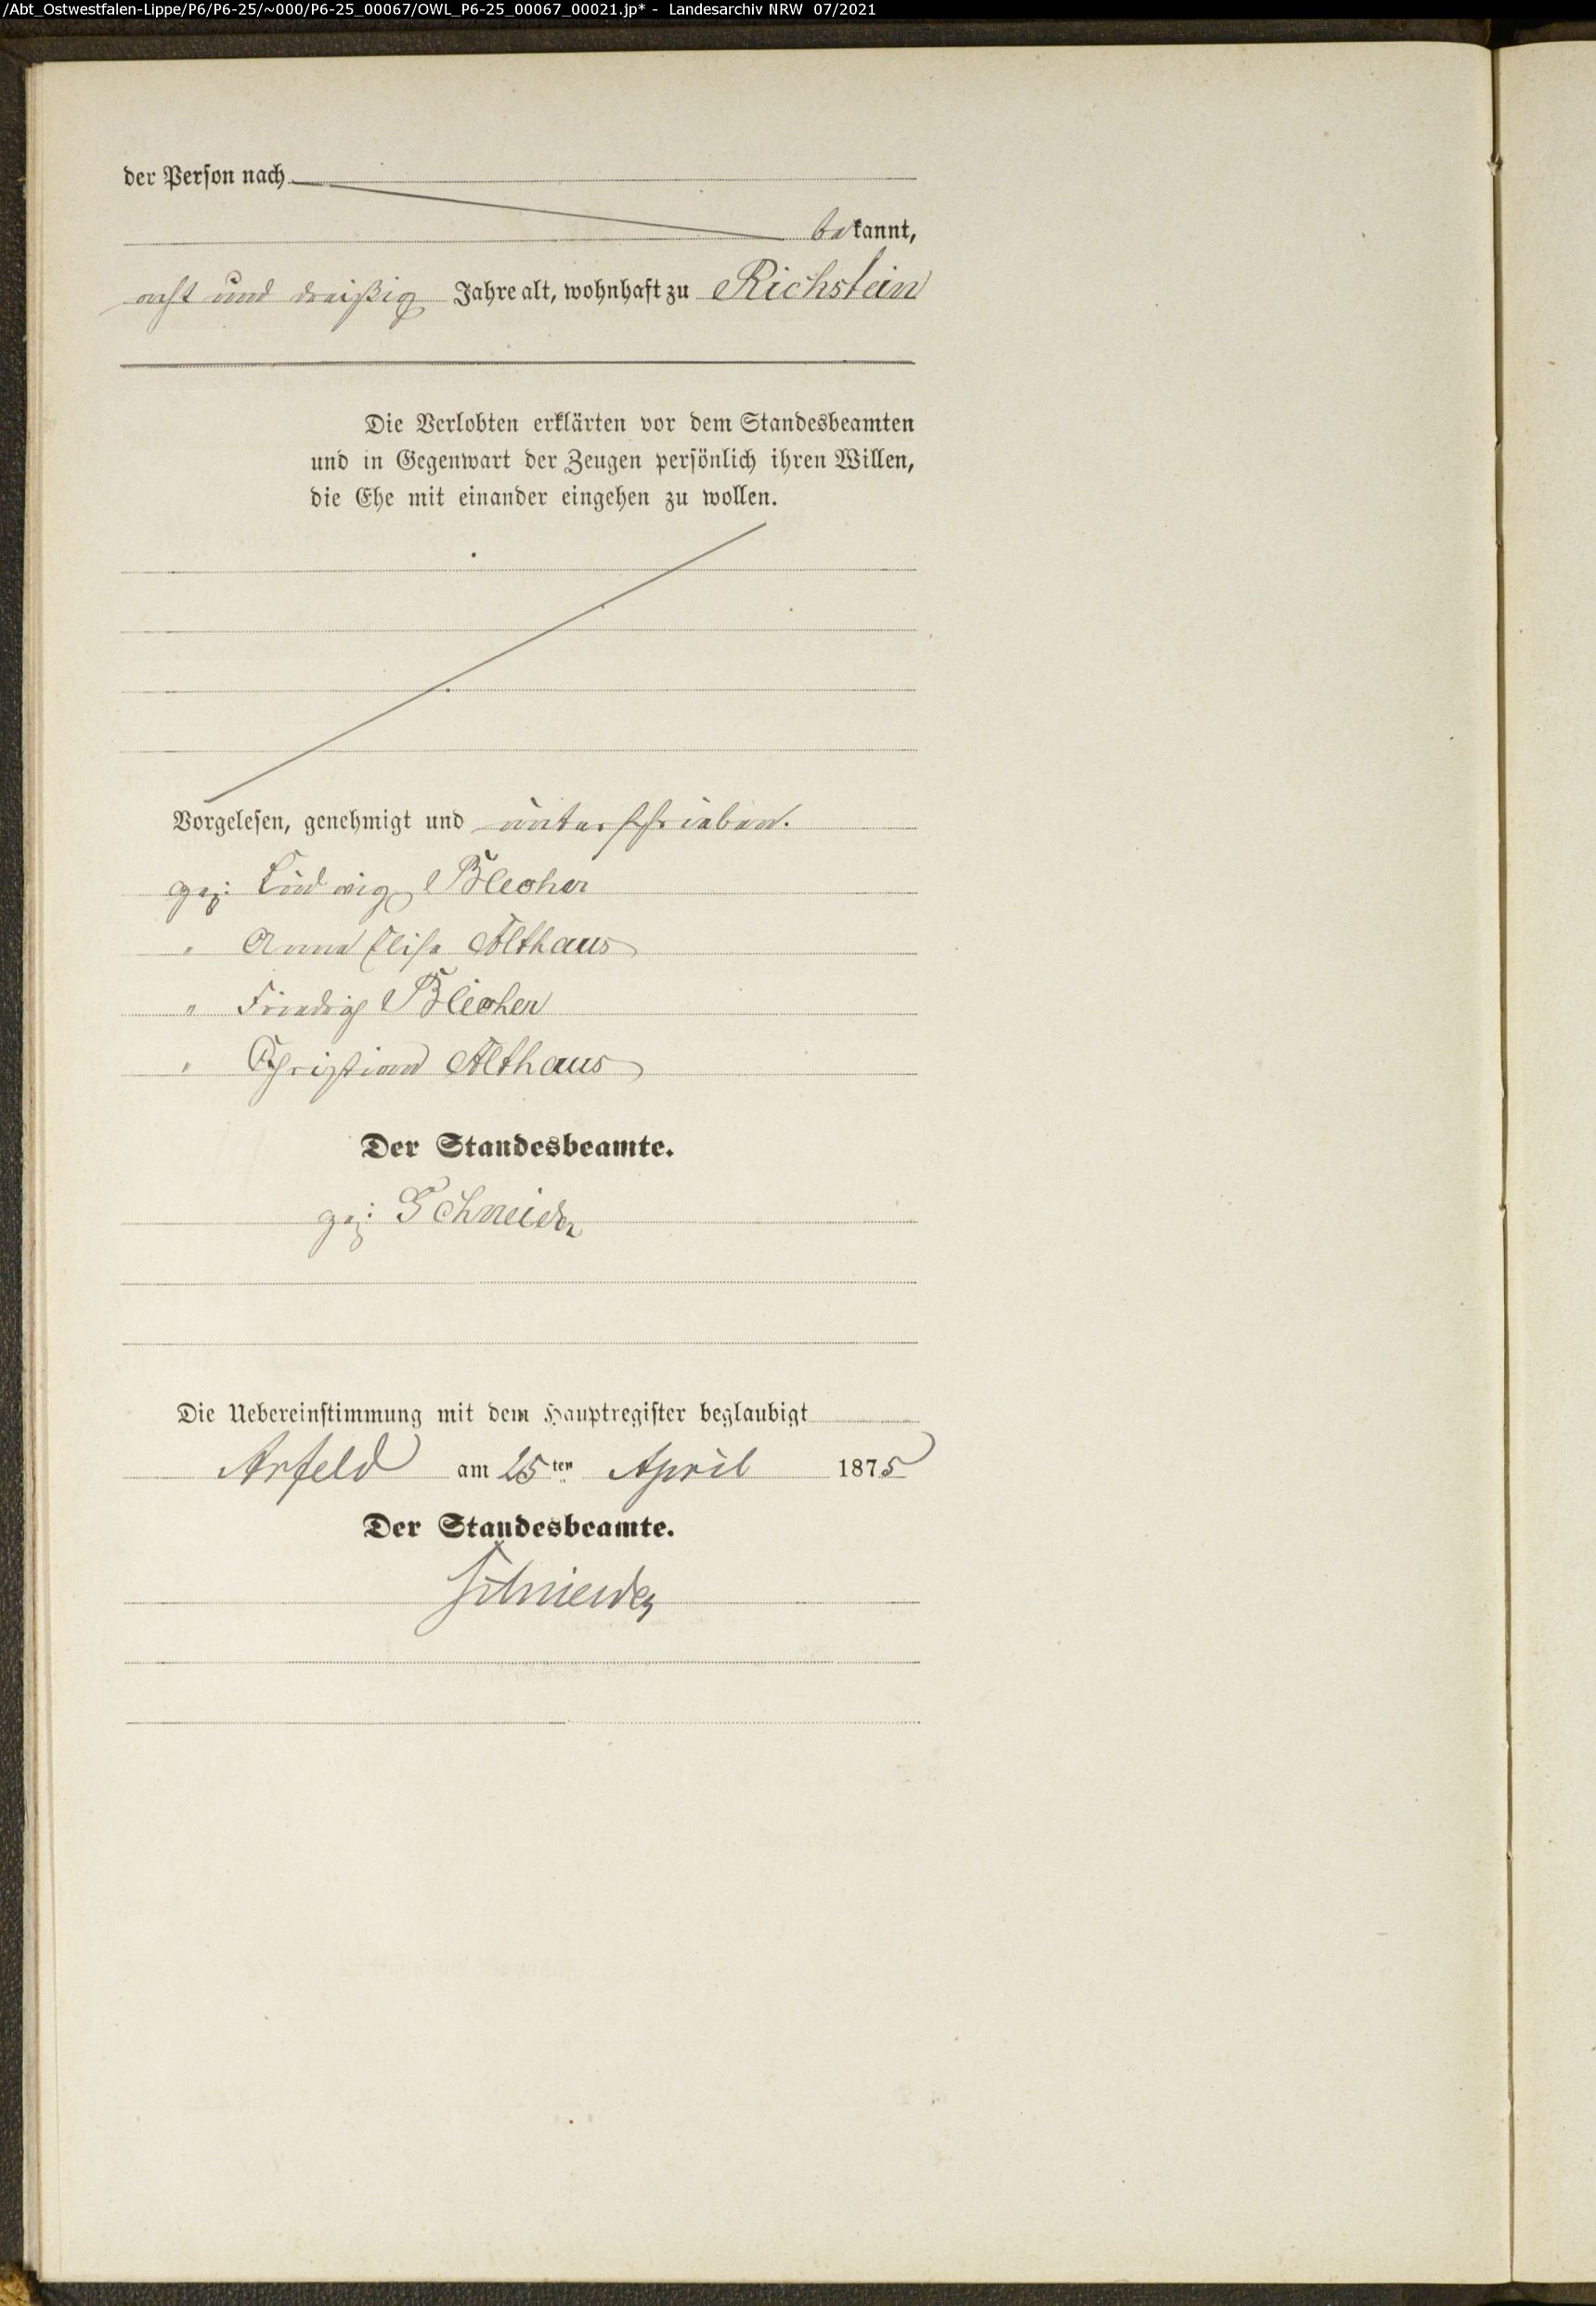 /Abt_Ostwestfalen-Lippe/P6/P6-25/~000/P6-25_00067/OWL_P6-25_00067_00021.jp* - Landesarchiv NRW 07/2021
der Person nach
bekannt,
acht und dreißig Jahre alt, wohnhaft zu Richstein
Die Verlobten erklärten vor dem Standesbeamten
und in Gegenwart der Zeugen persönlich ihren Willen,
die Ehe mit einander eingehen zu wollen.
Vorgelesen, genehmigt und unterschrieben.
gez: Ludwig Blecher
" Anna Elise Althaus
" Friedrich Blecher
" Christian Althaus
Der Standesbeamte.
gez: Schneider
Die Uebereinstimmung mit dem Hauptregister beglaubigt
Arfeld am 25ten April 1875
Der Standesbeamte.
Schneider